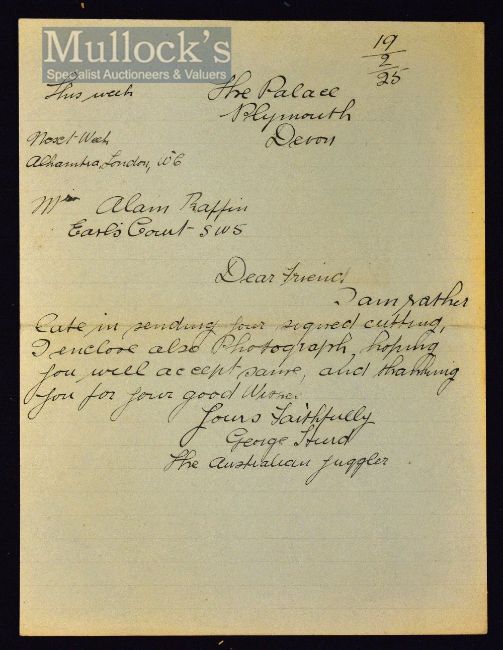 Mullock's
Specialist Auctioneers & Valuers
19
2
25
This week
The Palace
Plymouth
Devon
Next Week
Alhambra, London, WC
Mr Alam Raffin
Earl's Court SW5
Dear Friend
I am rather
late in sending your signed cutting,
I enclose also Photograph, hoping
you will accept same, and thanking
you for your good Wishes
Yours Faithfully
George Hurd
The Australian Juggler